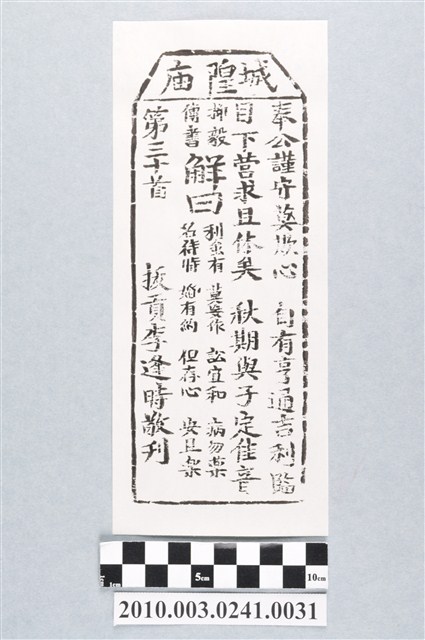 城隍庙
奉公謹守莫欺心 自有亨通吉利臨
目下營求且休矣 秋期與子定佳音
柳毅
傳書
解曰
利有 莫妄作 訟宜和 病勿藥
名待時 婚有約 但存心 安且樂
第三十首 拔貢李逢時敬刊
1cm 5cm 10cm
2010.003.0241.0031